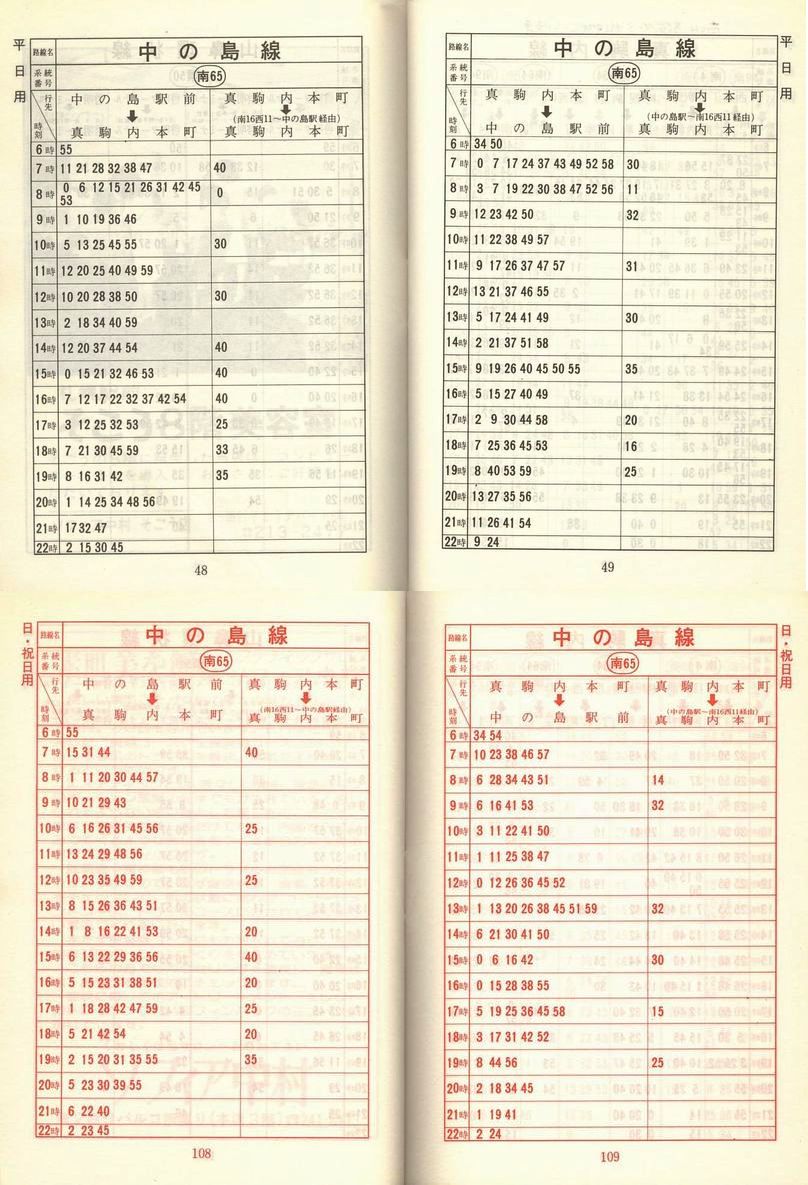 平日用
路線名 中の島線
系統番号 南65
行先 時刻 中の島駅前 ⬇ 真駒内本町 真駒内本町 ⬇ (南16西11~中の島駅経由) 真駒内本町
6時 55
7時 11 21 28 32 38 47 40
8時 0 6 12 15 21 26 31 42 45 53 0
9時 1 10 19 36 46
10時 5 13 25 45 55 30
11時 12 20 25 40 49 59
12時 10 20 28 38 50 30
13時 2 18 34 40 59
14時 12 20 37 44 54 40
15時 0 15 21 32 46 53 40
16時 7 12 17 22 32 37 42 54 40
17時 3 12 25 32 53 25
18時 7 21 30 45 59 33
19時 8 16 31 42 35
20時 1 14 25 34 48 56
21時 17 32 47
22時 2 15 30 45
48
平日用
路線名 中の島線
系統番号 南65
行先 時刻 真駒内本町 ⬇ 中の島駅前 真駒内本町 ⬇ (中の島駅~南16西11経由) 真駒内本町
6時 34 50
7時 0 7 17 24 37 43 49 52 58 30
8時 3 7 19 22 30 38 47 52 56 11
9時 12 23 42 50 32
10時 11 22 38 49 57
11時 9 17 26 37 47 57 31
12時 13 21 37 46 55
13時 5 17 24 41 49 30
14時 2 21 37 51 58
15時 9 19 26 40 45 50 55 35
16時 5 15 27 40 49
17時 2 9 30 44 58 20
18時 7 25 36 45 53 16
19時 8 40 53 59 25
20時 13 27 35 56
21時 11 26 41 54
22時 9 24
49
日・祝日用
路線名 中の島線
系統番号 南65
行先 時刻 中の島駅前 ⬇ 真駒内本町 真駒内本町 ⬇ (南16西11~中の島駅経由) 真駒内本町
6時 55
7時 15 31 44 40
8時 1 11 20 30 44 57
9時 10 21 29 43
10時 6 16 26 31 45 56 25
11時 13 24 29 48 56
12時 10 23 35 49 59 25
13時 8 15 26 36 43 51
14時 1 8 16 22 41 53 20
15時 6 13 22 29 36 56 40
16時 5 15 23 31 38 51 20
17時 1 18 28 42 47 59 25
18時 5 21 42 54 20
19時 2 15 20 31 35 55 35
20時 5 23 30 39 55
21時 6 22 40
22時 2 23 45
108
日・祝日用
路線名 中の島線
系統番号 南65
行先 時刻 真駒内本町 ⬇ 中の島駅前 真駒内本町 ⬇ (中の島駅~南16西11経由) 真駒内本町
6時 34 54
7時 10 23 38 46 57
8時 6 28 34 43 51 14
9時 6 16 41 53 32
10時 3 11 22 41 50
11時 1 11 25 38 47
12時 0 12 26 36 45 52
13時 1 13 20 26 38 45 51 59 32
14時 6 21 30 41 50
15時 0 6 16 42 30
16時 0 15 28 38 55
17時 5 19 25 36 45 58 15
18時 3 17 31 42 52
19時 8 44 56 25
20時 2 18 34 45
21時 1 19 41
22時 2 24
109